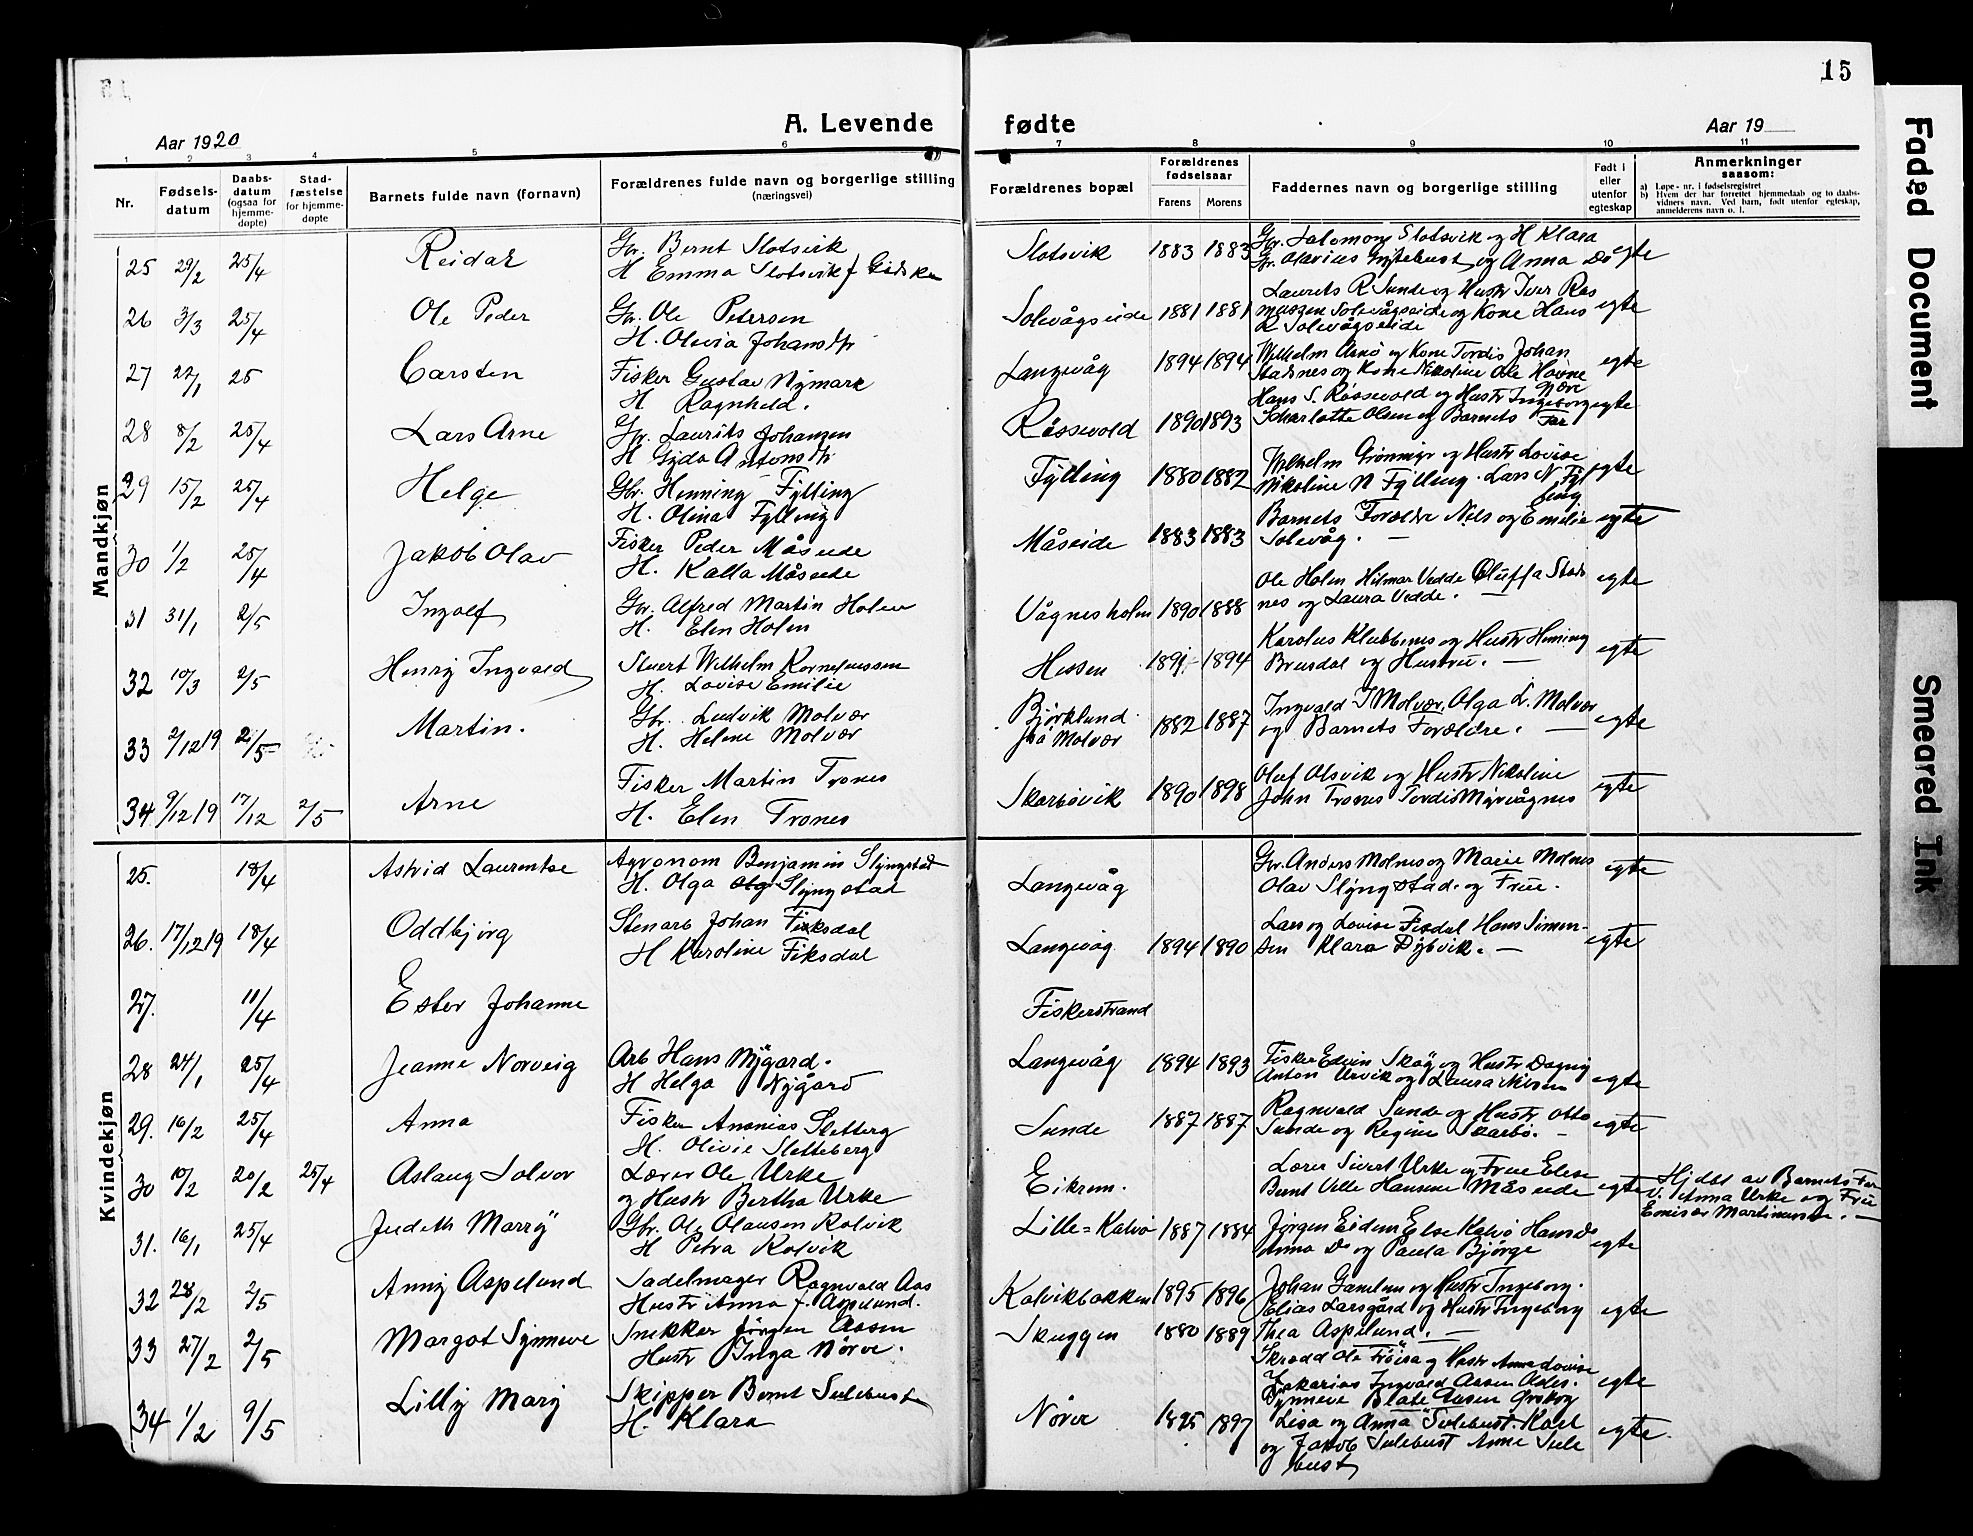 15
A. Levende fødte
Aar 1920
Aar 19
1 2 3 4 5 6 7 8 9 10 11
Nr.
Fødsels-
datum
Daabs-
datum
(ogsaa for
hjemme-
døpte)
Stad-
fæstelse
for hjemme-
døpte
Barnets fulde navn (fornavn)
Forældrenes fulde navn og borgerlige stilling
(næringsvei)
Forældrenes bopæl
Forældrenes
fødselsaar
Farens Morens
Faddernes navn og borgerlige stilling
Født i
eller
utenfor
egteskap
Anmerkninger
saasom:
a) Løpe-nr. i fødselsregistret
b) Hvem der har forrettet hjemmedaab og to daabs-
vidners navn. Ved barn, født utenfor egteskap,
anmelderens navn o. l.
Mandkjøn
25 29/2 25/4 Reidar Gbr. Bernt Slotsvik
H Emma Slotsvik f Gidske
Slotsvik 1883 1883 Gbr. Salomon Slotsvik og H Klara
Gbr. Olavius og Anna Do egte
26 3/3 25/4 Ole Peder Gbr. Ole Petersen
H. Olivia Johansdtr
Solevågseide 1881 1881 Laurits R Sunde og Hustr Iver Ras
mussen Solevågseide og Kone Hans
R Solevågseide egte
27 22/1 25 Carsten Fisker Gustav Nymark
H Ragnhild.
Langevåg 1894 1894 Wilhelm Arnö og Kone Tordis Johan
Stadsnes og Kone Nikoline Ole Havne egte
28 8/2 25/4 Lars Arne Gbr. Laurits Johansen
H Gyda Antonsdtr
Røssevold 1890 1893 Hans S. Røssevold og Hustr Ingeborg
Scharlotte Olsen og Barnets Far egte
29 15/2 25/4 Helge Gbr. Henning Fylling
H. Olina Fylling
Fylling 1880 1882 Wilhelm Grönmyr og Hustr Lovise
Nikoline N Fylling. Lars N Fyl
ling egte
30 1/2 25/4 Jakob Olav Fisker Peder Måseide
H. Kalla Måseide
Måseide 1883 1883 Barnets Forældre Nils og Emilie
Solevåg. — egte
31 31/1 2/5 Ingolf Gbr. Alfred Martin Holen
H. Elen Holen
Vågnesholm 1890 1888 Ole Holen Hilmar Vedde Oluffa Stads
nes og Laura Vedde. — egte
32 10/3 2/5 Henry Ingvald Stuert Wilhelm Korneliussen
H. Lovise Emilie
Hessen 1891 1894 Karolus Klubbenes og Hustr Heming
Brusdal og Hustru. — egte
33 2/12 19 2/5 Martin. Gbr. Ludvik Molvær
H. Helene Molvær
Björklund
på Molvær 1882 1887 Ingvald J Molvær, Olga L. Molvær
og Barnets Forældre. — egte
34 9/12 19 17/12 2/5 Arne Fisker Martin Trones
H. Elen Trones
Skarbövik 1890 1898 Oluf Olsvik og Hustr Nikoline
John Trones Tordis Myrvågnes egte
Kvindekjøn
25. 18/4 Astrid Laurentse Agronom Benjamin Slyngstad
H. Olga Slyngstad
Langevåg Gbr. Anders Molnes og Marie Molnes
Olav Slyngstad og Frue. egte
26. 17/12 19 18/4 Oddbjörg Stenarb Johan Fiksdal
H Karoline Fiksdal
Langevåg 1894 1890 Lars og Lovise Fiksdal Hans Simon-
sen Klara Dybvik. — egte
27. 11/4 Ester Johanne Fiskerstrand
28 24/1 25/4 Jeanne Norveig Arb Hans Nygård.
H Helga Nygård
Langevåg 1894 1893 Fisker Edvin Skaÿ og Hustr Dagny
Anton Urvik og Laura Nilsen egte
29. 16/2 25/4 Anna Fisker Ananias Sletteberg
H. Olivie Sletteberg
Sunde 1887 1887 Ragnvald Sunde og Hustr Otto
Sunde og Regine Skarbö. — egte
30 10/2 20/2 25/4 Aslaug Solvor Lærer Ole Urke
og Hustr Bertha Urke
Eikrem. Lærer Sivert Urke og Frue Elise
Bernt Velle Hansine Måseide egte
Hjdbt av Barnets Far
V. Anna Urke og Frue
Emisær Martinussen. —
31. 16/1 25/4 Judith Marrÿ Gbr. Ole Olausen Kalvik
H Petra Kalvik
Lille=Kalvö 1887 1884 Jørgen Eidem Else Kalvö Hans Do
Anna Do og Paula Bjørge egte
32 28/2 2/5 Anny Aspelund Sadelmager Ragnvald Aas
Hustr Anna f. Aspelund.
Kalvikbakken 1895 1896 Johan Gamlem og Hustr Ingeborg.
Elias Larsgård og Hustr Ingeborg
Thea Aspelund. — egte
33 27/2 2/5 Margot Synneve Snekker Jörgen Aasen
Hustr Inga Nörve.
Skuggen 1880 1889 Skredd Ole Fröisa og Hustr Anne Lovise
Zakarias Ingvald Aasen Aldis.
Synneve Beate Aasen Ørskog egte
34 1/2 9/5 Lilly Mary Skipper Bernt Sulebust
H. Klara
Nörve 1895 1897 Lisa og Anna Sulebust. Karl
og Jakob Sulebust Anne Sule
bust egte
Faded Document
Smeared Ink